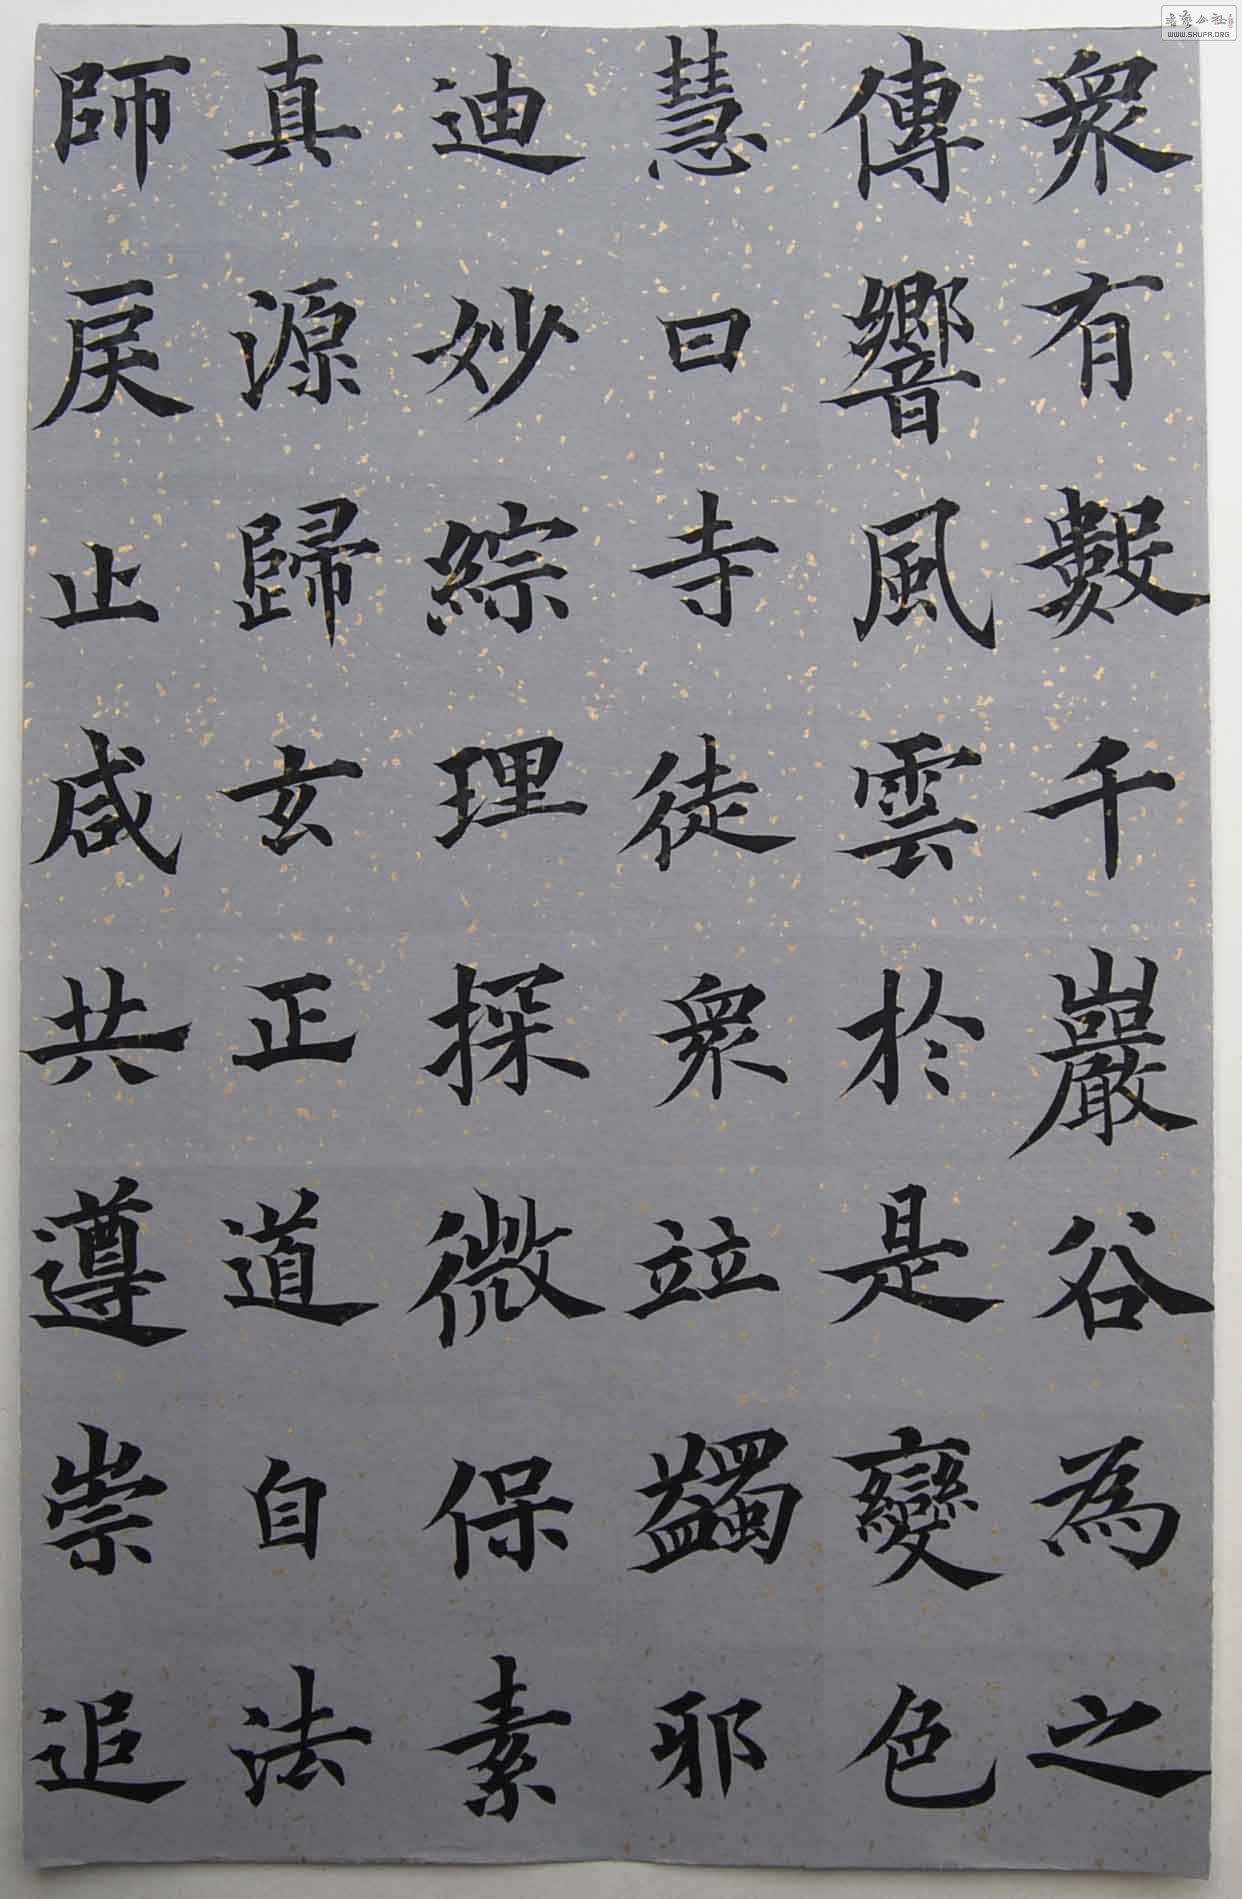 衆有數千巖谷為之
傳響風雲於是變色
慧日寺徒衆竝蠲邪
迪妙綜理探微保素
真源歸玄正道自法
師戾止咸共遵崇追
WWW.SHUFA.ORG